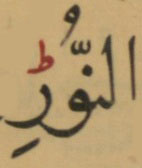 النُّورِؕ